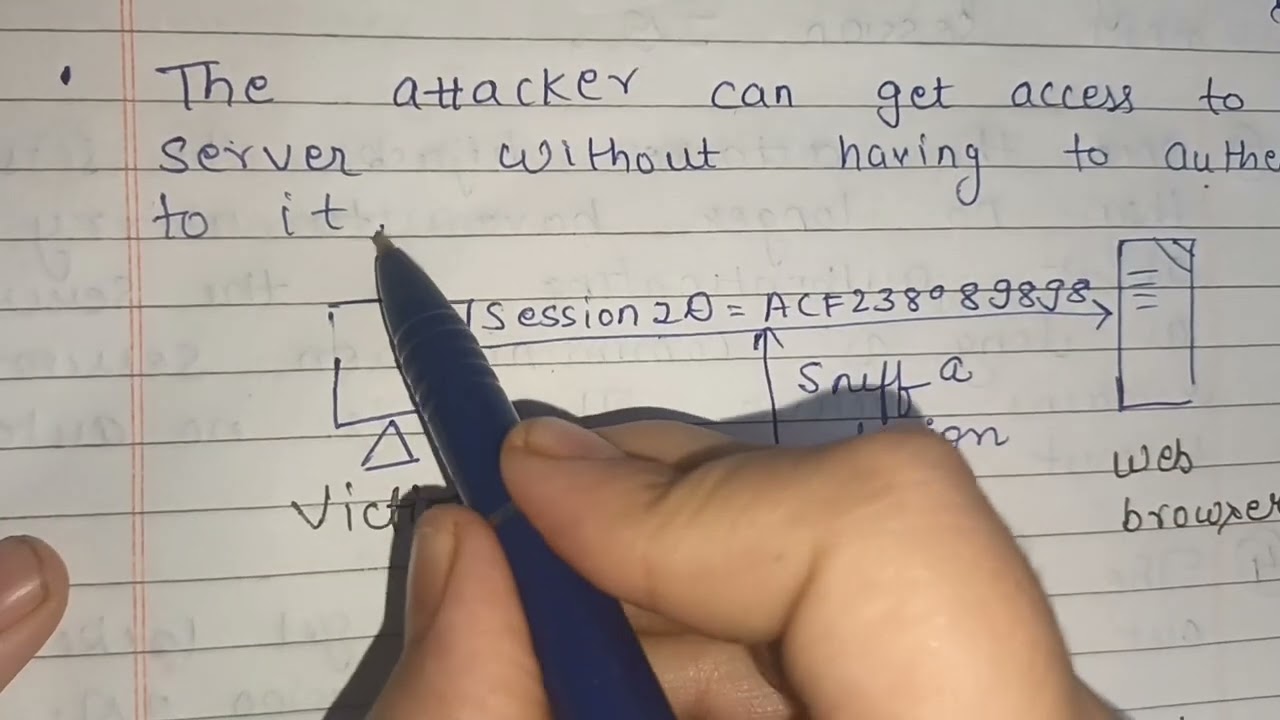 • The attacker can get access to
server without having to authe
to it.
Session ID = ACF238089898
Sniff a
web
browxer